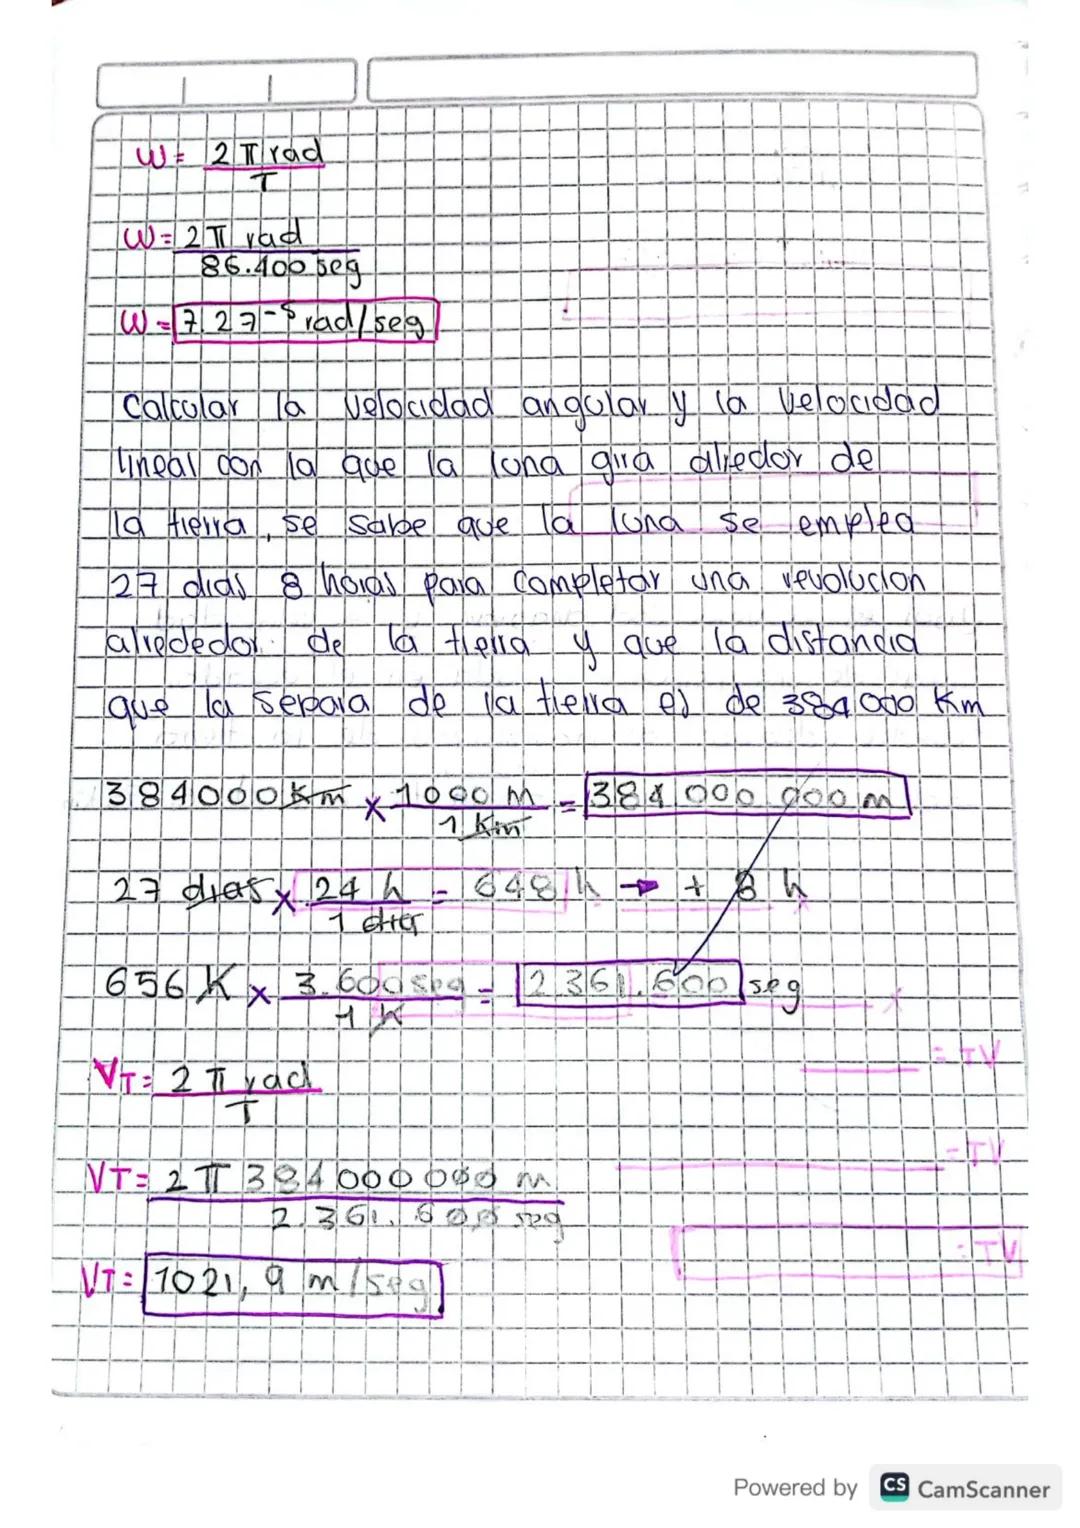 W = 2 π rad
T
W = 2 π rad
86.400 seg
W = 7.27⁻⁵ rad/seg
Calcular la velocidad angular y la velocidad
lineal con la que la luna gira alredor de
la tierra, se sabe que la luna se emplea
27 dias 8 horas para completar una revolucion
alrededor de la tierra y que la distancia
que la separa de la tierra es de 384 000 Km
384000 Km x 1000 m = 384.000.000 m
1 Km
27 dias x 24 h = 648 h → + 8 h
1 dia
656 h x 3.600 seg = 2.361.600 seg
1 h
VT = 2 π rad
T
VT = 2 π 384 000 000 m
2.361.600 seg
VT = 1021,9 m/seg
Powered by CS CamScanner